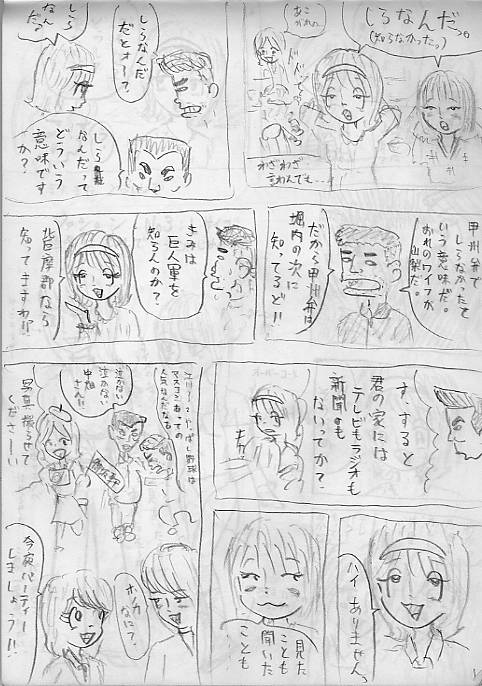 しらなんだっ。
(知らなかった。)
あこ
がれ
わざわざ
言わんでも…
しらなんだ
だとォー?
しら
なん
だっ。
しら
なんだって
どういう
意味です
か?
甲州弁で
しらなかったて
いう意味だ。
おれのワイフが
山梨だ。
だから甲州弁は
堀内の次に
知ってるど!!
きみは
巨人軍を
知らんのか?
北巨摩郡なら
知ってますわ!?
す、すると
君の家には
テレビもラジオも
新聞も
ないってか?
ハイ ありません。
見た
ことも
聞いた
ことも
やっぱし野球は
マスコミあっての
人気なんだなあ
泣かない
泣かない
中畑
さん!!
写真撮らせて
くださーい
ホンカ
なに?
今夜パーティー
しましょう!!